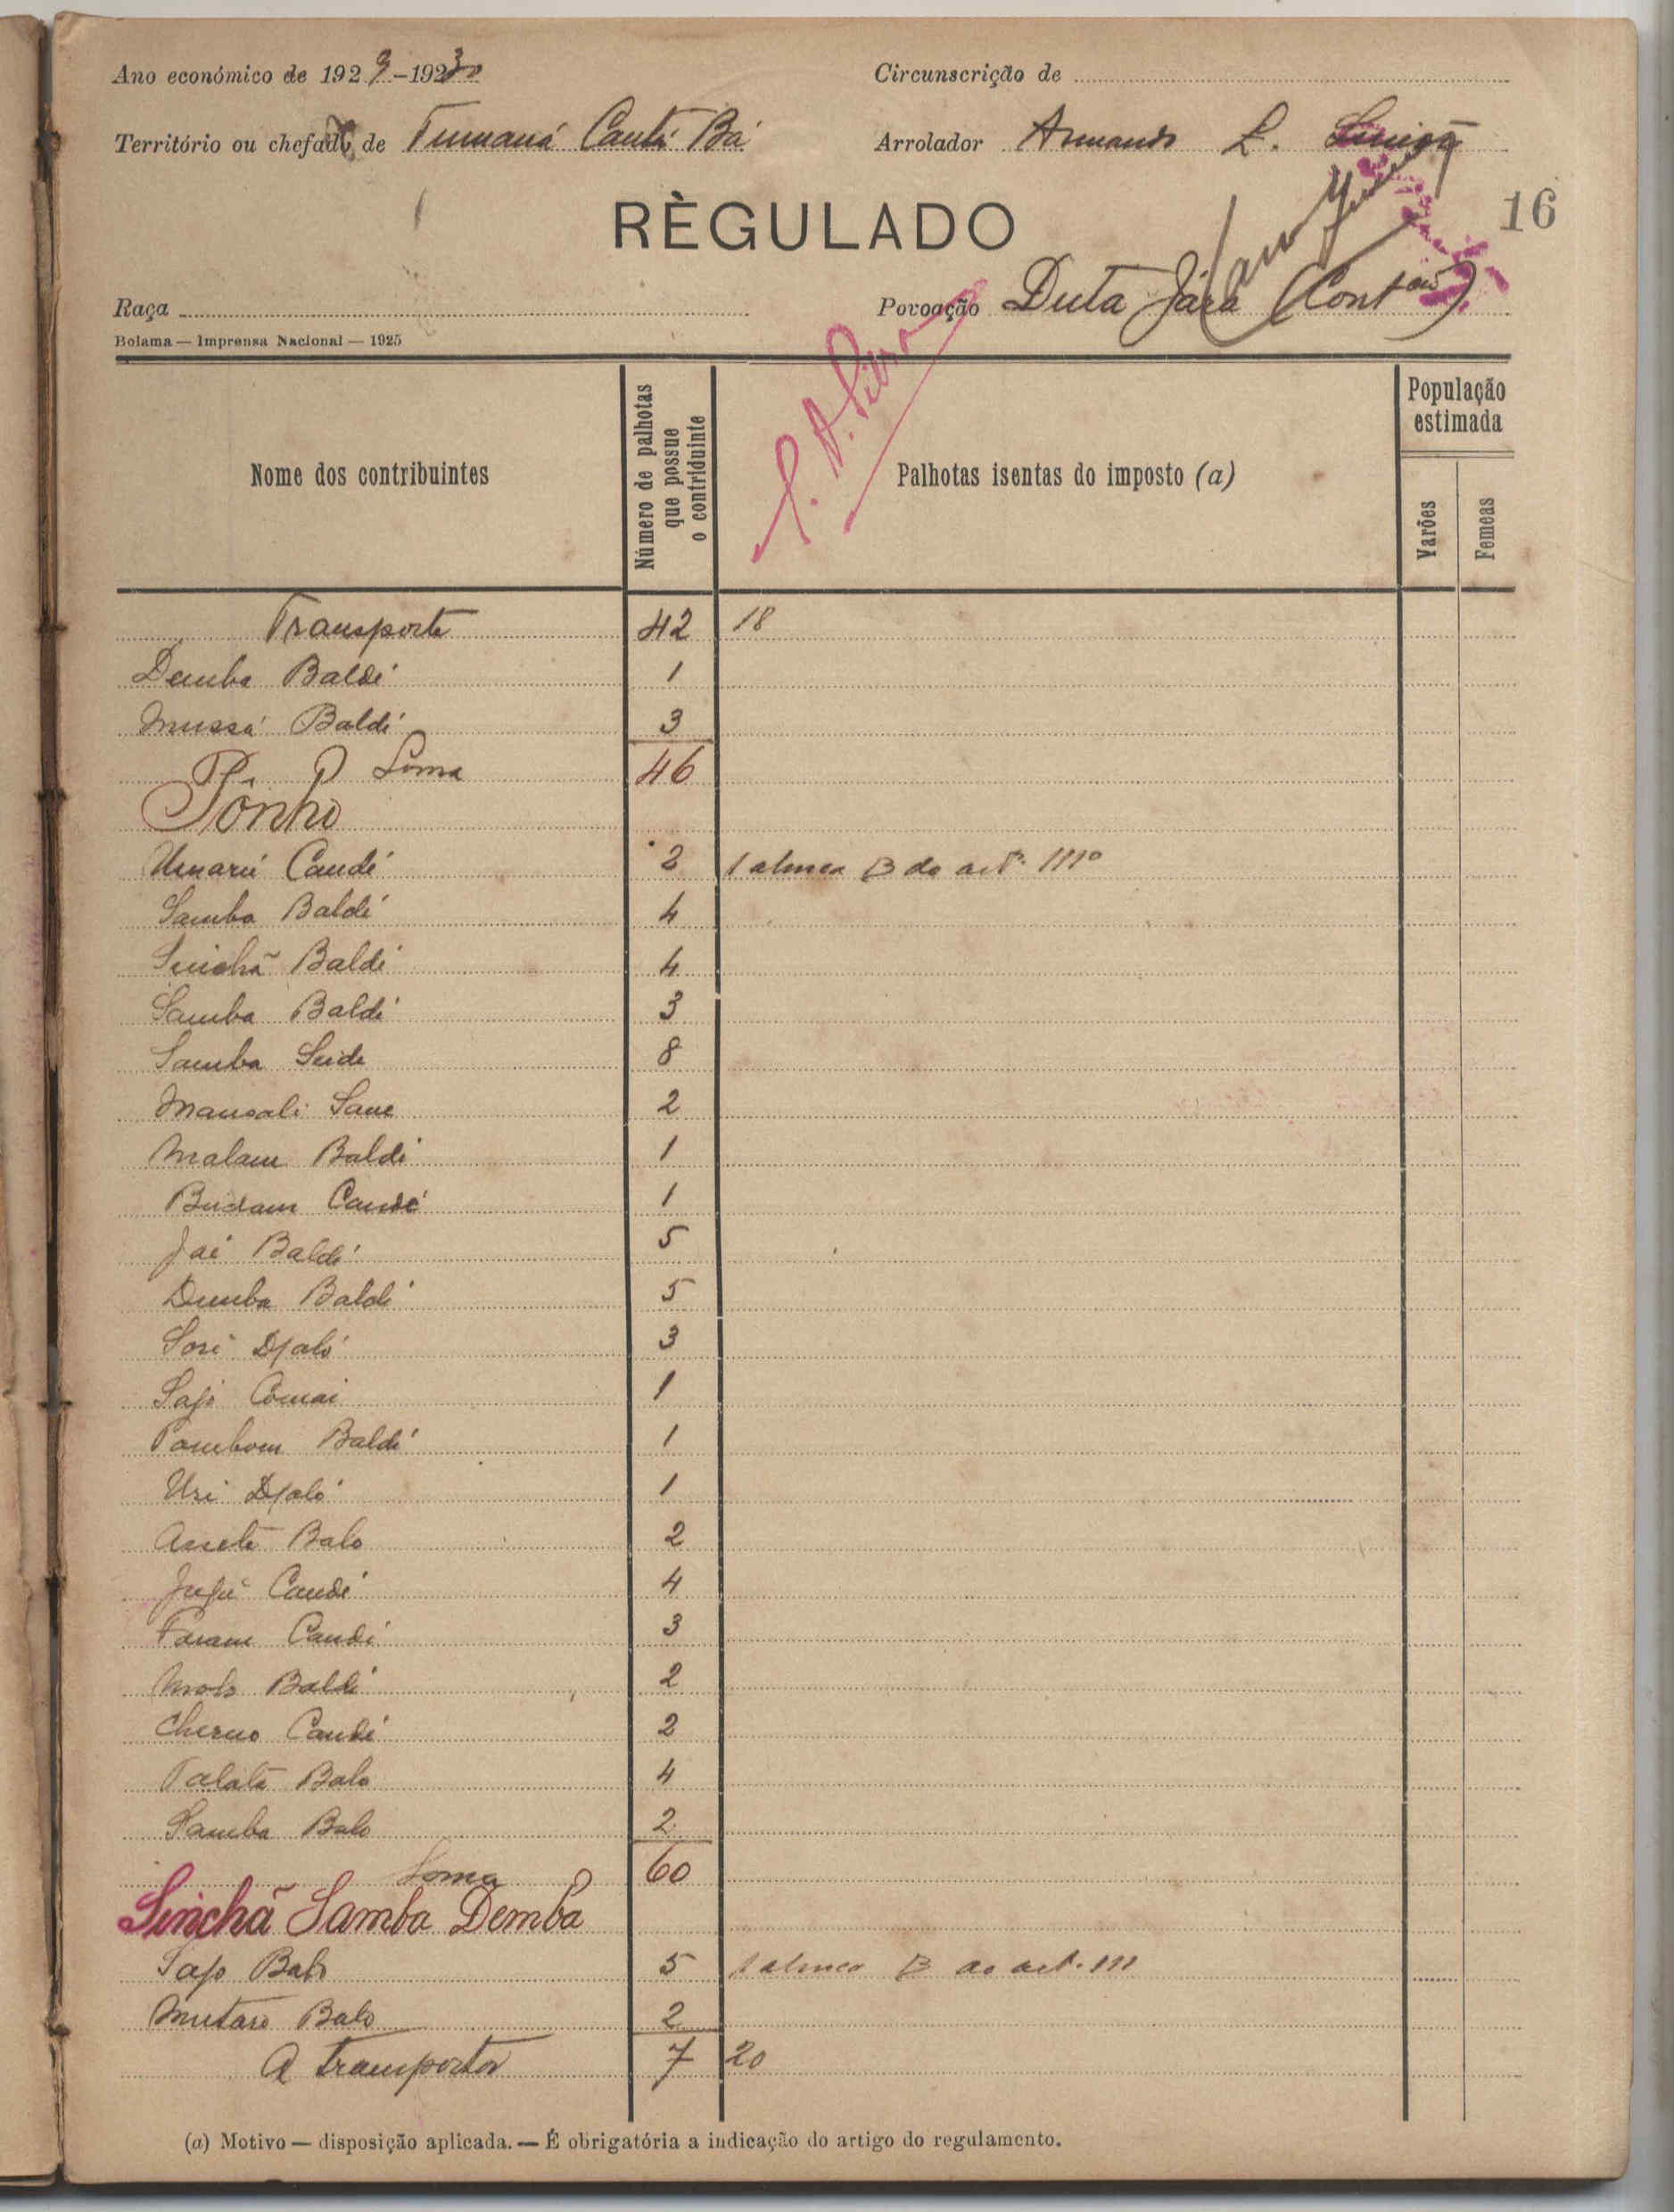 Ano económico de 1929-1930
Circunscrição de
Território ou chefado de Tumaná Cantá Bá
Arrolador Armando L.
16
RÈGULADO
Raça
Povoação Duta Jára (Contão)
Bolama — Imprensa Nacional — 1925
Nome dos contribuintes
Número de palhotas que possue o contriduinte
Palhotas isentas do imposto (a)
População estimada
Varões
Femeas
Transporte 42 18
Demba Baldé 1
Mussá Baldé 3
Soma 46
Pônho
Umarú Candé 2 1 alinea B do artº. 111º
Samba Baldé 4
Sinchã Baldé 4
Samba Baldé 3
Samba Seide 8
Mansali Sane 2
Malam Baldé 1
Budam Candé 1
Jaé Baldé 5
Demba Baldé 5
Sori Djaló 3
Sajo 1
Baldé 1
Uri Djaló 1
Balo 2
Candé 4
Candé 3
Molo Baldé 2
Cherno Candé 2
Talata Balo 4
Samba Balo 2
Soma 60
Sinchã Samba Demba
Sajo Balo 5 1 alinea B do art. 111
Mutaro Balo 2
A transportar 7 20
(a) Motivo — disposição aplicada. — É obrigatória a indicação do artigo do regulamento.